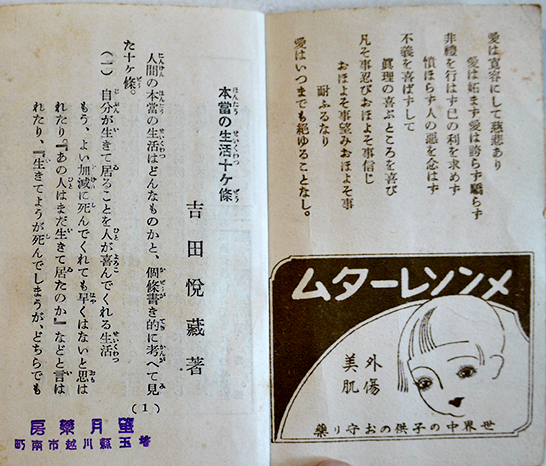 愛は寛容にして慈悲あり
愛は妬まず愛は誇らず驕らず
非禮を行はず己の利を求めず
憤ほらず人の惡を念はず
不義を喜ばずして
眞理の喜ぶところを喜び
凡そ事忍びおほよそ事信じ
おほよそ事望みおほよそ事
耐ふるなり
愛はいつまでも絶ゆることなし。
ムターレソンメ
外傷
美肌
藥り守おの供子の中界世
本當の生活十ケ條
吉田悅藏著
人間の本當の生活はどんなものかと、個條書き的に考へて見
た十ケ條。
(一) 自分が生きて居ることを人が喜んでくれる生活
もう、よい加減に死んでくれても早くはないと思は
れたり、『あの人はまだ生きて居たのか』などと言は
れたり、『生きてようが死んでしまうが、どちらでも
(1)
房藥月望
町南市越川縣玉埼